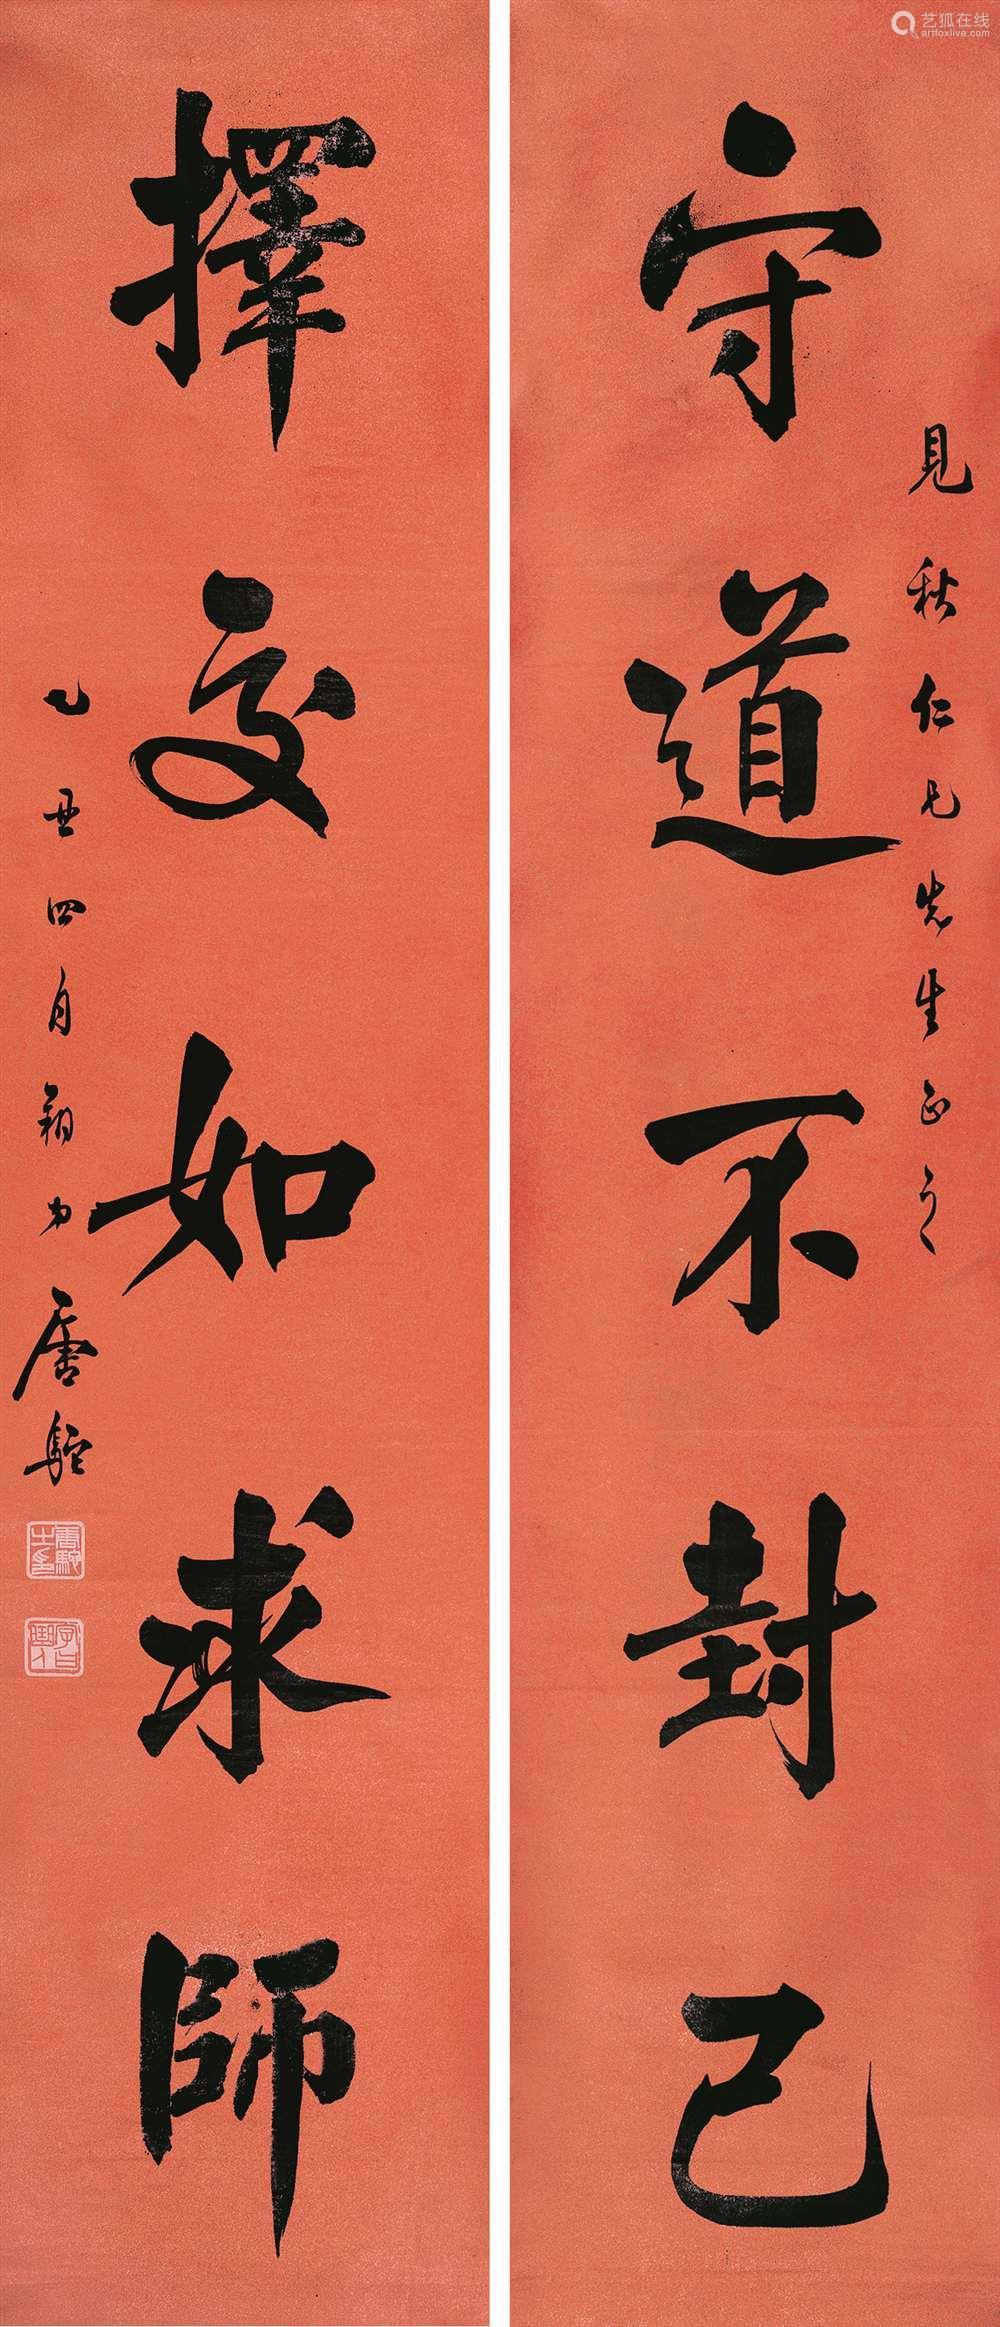 守道不封己
見秋仁兄先生正之
擇交如求師
乙丑四月
唐駝
唐駝之印
艺狐在线
artfoxlive.com